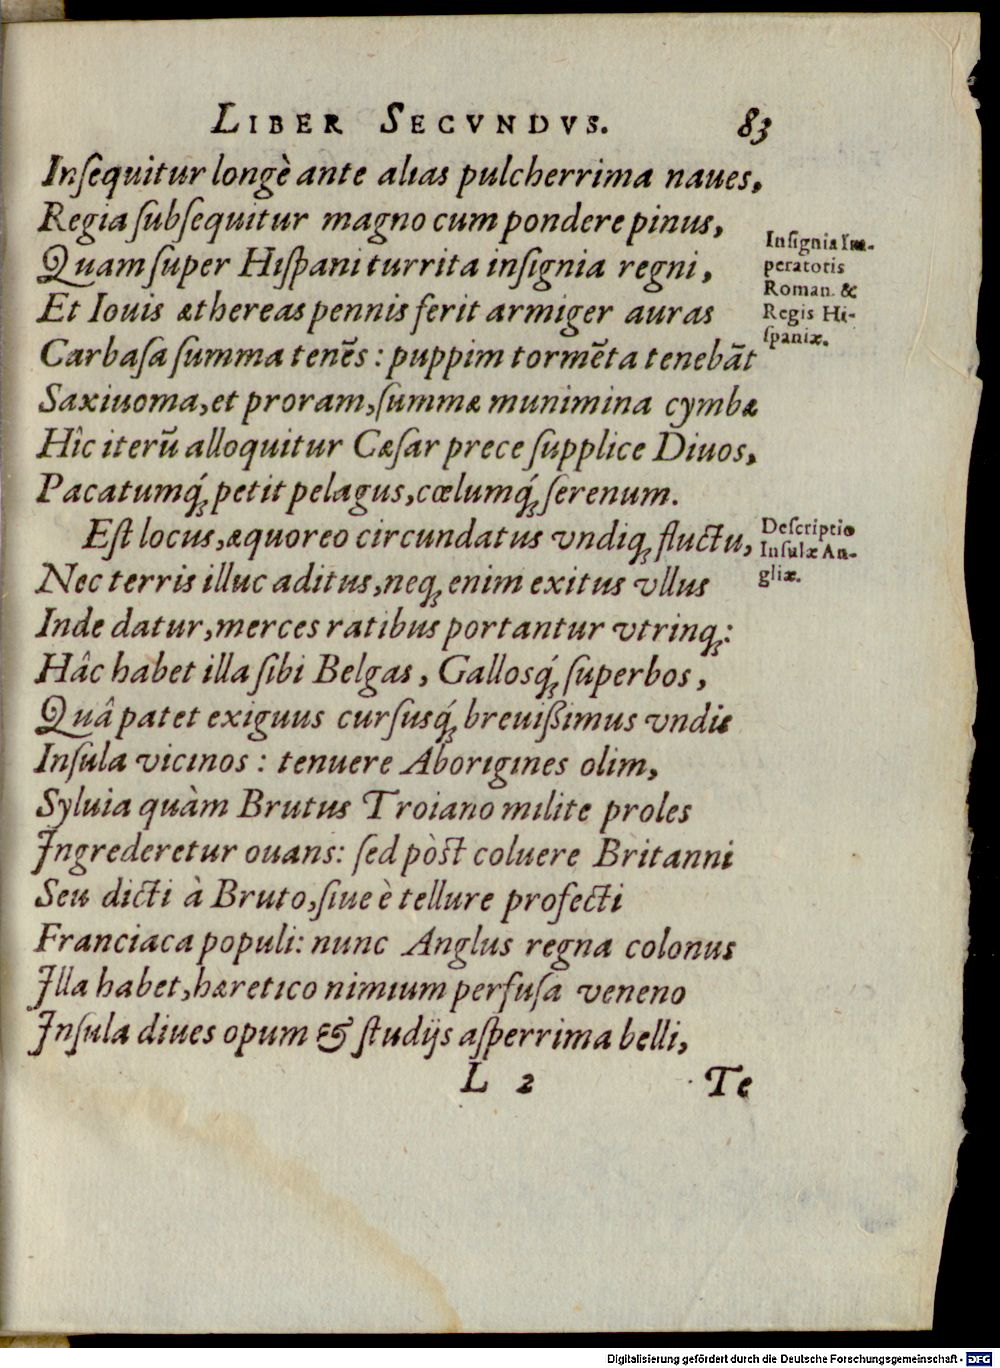 LIBER SECVNDVS. 83
Insequitur longè ante alias pulcherrima naues,
Regia subsequitur magno cum pondere pinus,
Quam super Hispani turrita insignia regni,
Et Iouis æthereas pennis ferit armiger auras
Carbasa summa tenēs: puppim tormēta tenebāt
Saxiuoma, et proram, summæ munimina cymbæ
Hîc iterū alloquitur Cæsar prece supplice Diuos,
Pacatumq́; petit pelagus, cœlumq́; serenum.
Insignia Im-
peratoris
Roman. &
Regis Hi-
spaniæ.
Est locus, æquoreo circundatus vndiq; fluctu,
Nec terris illuc aditus, neq; enim exitus vllus
Inde datur, merces ratibus portantur vtrinq;:
Hâc habet illa sibi Belgas, Gallosq́; superbos,
Quâ patet exiguus cursusq́; breuißimus vndis
Insula vicinos: tenuere Aborigines olim,
Syluia quàm Brutus Troiano milite proles
Ingrederetur ouans: sed pòst coluere Britanni
Seu dicti à Bruto, siue è tellure profecti
Franciaca populi: nunc Anglus regna colonus
Illa habet, hæretico nimium perfusa veneno
Insula diues opum & studijs asperrima belli,
Descriptio
Insulæ An-
gliæ.
L 2 Te
Digitalisierung gefördert durch die Deutsche Forschungsgemeinschaft - DFG